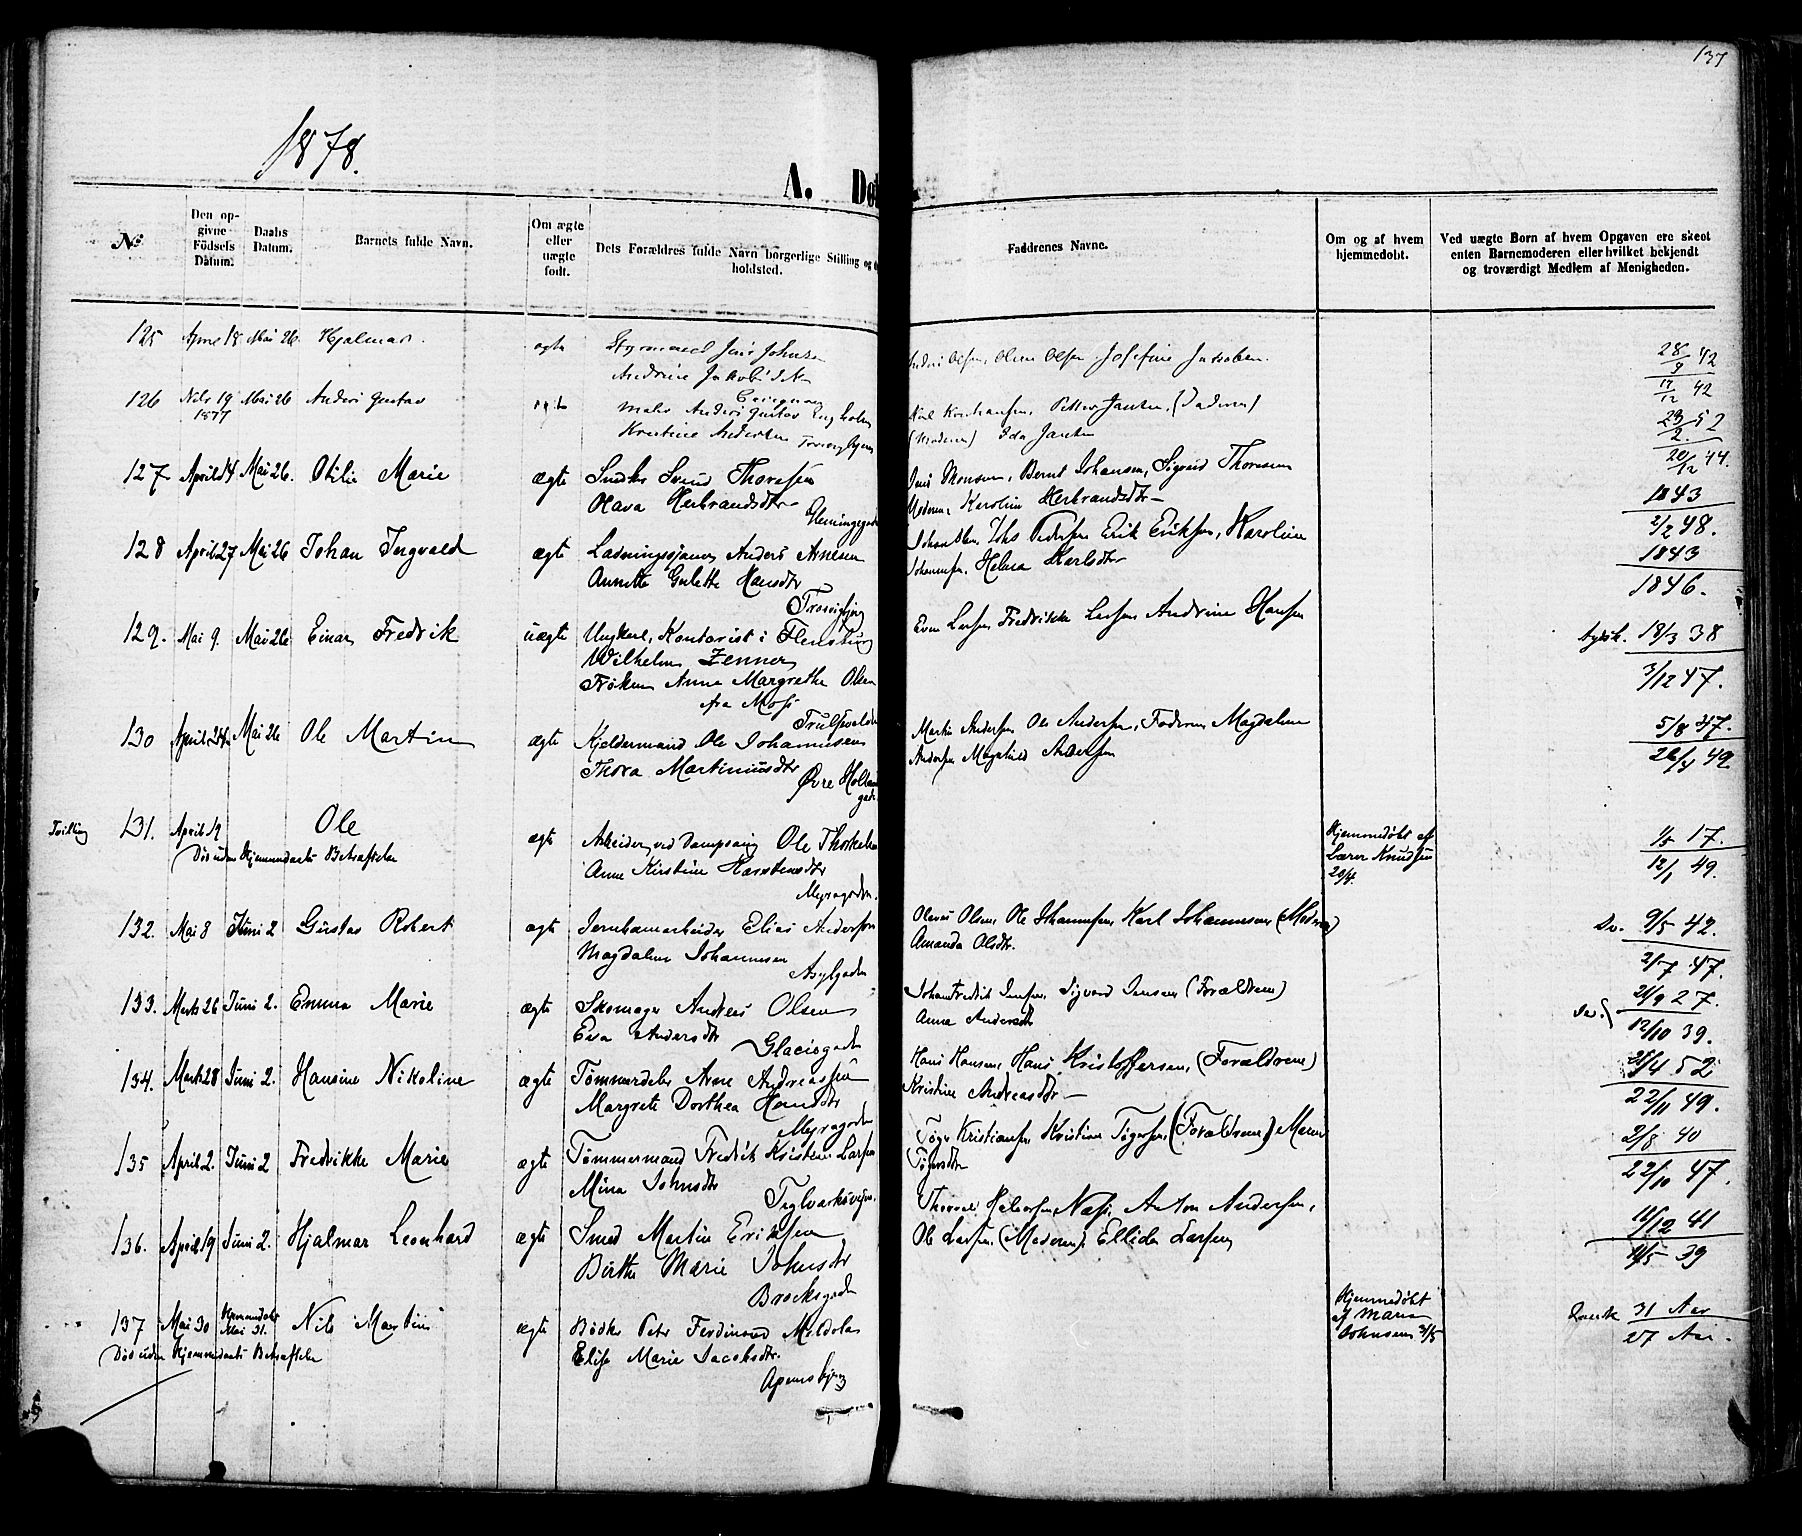 137
1878.
A. Dø
No.
Den opgivne Födsels Datum.
Daabs Datum.
Barnets fulde Navn.
Om ægte eller uægte født.
Dets Forældres fulde Navn borgerlige Stilling og
holdsted.
Faddrenes Navne.
Om og af hvem hjemmedøbt.
Ved uægte Børn af hvem Opgaven ere skeet
enten Barnemoderen eller hvilket bekjendt
og troværdigt Medlem af Menigheden.
125 April 18 Mai 26. Hjalmar. ægte Jens Johnsen Olsen, Olsen Josefine Jakobsen 28/9 42
Andrine 17/12 42
126 19 Mai 26 Anders Gustav Anders Gustav Petter Jansen, (Faderen) 29/2 52
1877 Kristine Andersen (Moderen) Ida Jansen 20/12 44.
127 April 14 Mai 26. Otilie Marie ægte Snedker Svend Thoresen Jens Monsen, Bernt Johansen, Sigvard Thoresen 1843
Olava Herbrandsdtr Moderen, Karoline Herbrandsdtr 2/2 48.
Glemmingegaden
128 April 27 Mai 26 Johan Ingvald ægte Anders Arnesen Pedersen Erik Eriksen, Karoline 1843
Annette Gulette Hansdtr Johannesen, Helena Karlsdtr 1846.
Trosvigbjerg
129. Mai 9. Mai 26 Einar Fredrik uægte Ungkarl, Kontorist i Flensburg Even Larsen Fredrikke Larsen Andrine Hansen 18/3 38
Wilhelm Zenner 3/12 47.
Frøken Anne Margrethe Olsen
fra Moss
130 April 24 Mai 26 Ole Martin ægte Kjeldermand Ole Johannesen Martin Andersen Ole Andersen, Faderen Magdalene 5/8 47.
Thora Martiniusdtr Andersen Andersen 26/4 49.
Øvre Hollen
gade.
Tvilling 131. April 19 Ole ægte Arbeider ved Dampsaug Ole Thorkelsen Hjemmedøbt af 1/5 17.
Død uden Hjemmedaabs Bekræftelse Anne Kirstine Karstensdtr Lærer Knudsen 12/1 49.
Myragaden. 20/4.
132. Mai 8 Juni 2 Gustav Robert ægte Jernbanearbeider Elias Andersen Olaves Olsen, Ole Johannesen, Karl Johannesen (Moderen) Sv. 9/5 42.
Magdalene Johannesen Amanda Olsdtr. 2/7 47.
Asylgaden
133. Marts 26 Juni 2. Emma Marie ægte Skomager Andreas Olsen Johan Fredrik Jensen, Sigvard Jensen (Forældrene) Sv. 21/9 27.
Eva Andersdtr Anna Andersdtr 12/10 39.
Glacisgaden
134. Marts 28 Juni 2. Hansine Nikoline ægte Tømmerdeler Arne Andreassen Hans Hansen, Hans Kristoffersen, (Forældrene) 24/4 52
Margrete Dorthea Hansdtr Kristine Andreasdtr 22/11 49.
Myragaden
135 April 2. Juni 2 Fredrikke Marie ægte Tømmermand Fredrik Kristian Larsen Tøger Kristiansen Kristine Tøgersen, (Forældrene) Maren 2/8 40
Mina Johnsdtr Tøgersdtr 22/10 47.
Teglverksveien.
136. April 19 Juni 2. Hjalmar Leonhard ægte Smed Martin Eriksen Anton Andersen, 14/12 41
Birthe Marie Johnsdtr Ole Larsen (Moderen). Ellida Larsen 11/5 39
Brocksgaden
137 Mai 30 Hjemmedøbt Mai 31. Nils Martin ægte Bødker Peter Ferdinand Hjemmedøbt Dansk 31 Aar
Død uden Hjemmedaabs Bekræftelse Elise Marie Jacobsdtr. af Maren Johnsen 31/5 27 Aar.
Apenesbjerg